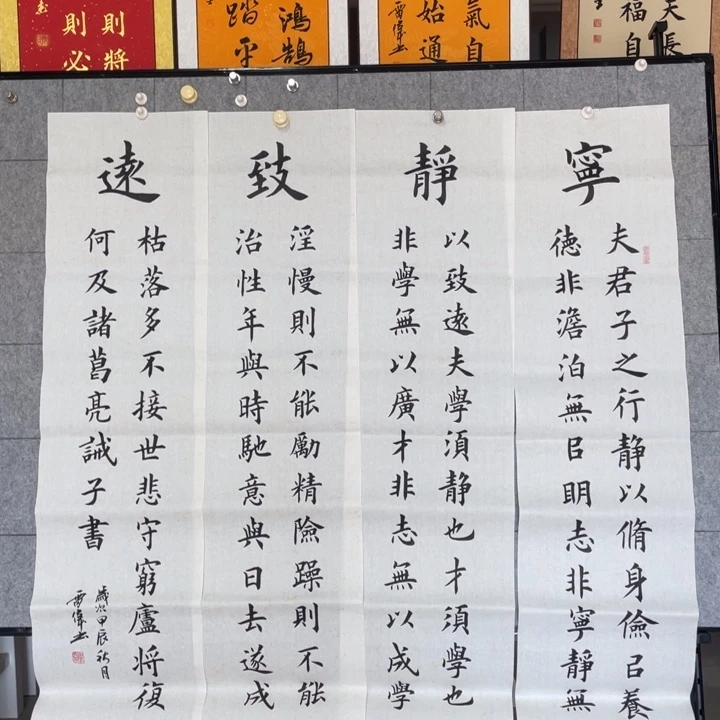 天長
福自
氣自
始通
雷偉书
鴻鵠
踏平
則將
則必
寧靜致遠
夫君子之行静以脩身儉㠯養
徳非澹泊無㠯明志非寧静無
以致遠夫學須静也才須學也
非學無以廣才非志無以成學
淫慢則不能勵精險躁則不能
治性年與時馳意與日去遂成
枯落多不接世悲守窮廬將復
何及諸葛亮誡子書
歲次甲辰秋月
雷偉书